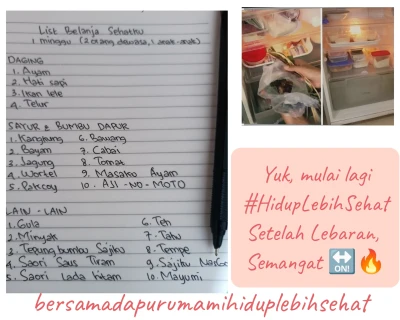 List Belanja Sehatku
1 minggu (2 orang dewasa, 1 anak-anak)
DAGING
1. Ayam
2. Hati sapi
3. Ikan lele
4. Telur
SAYUR & BUMBU DAPUR
1. Kangkung 6. Bawang
2. Bayam 7. Cabai
3. Jagung 8. Tomat
4. Wortel 9. Masako Ayam
5. Pakcoy 10. AJI-NO-MOTO
LAIN - LAIN
1. Gula 6. Teh
2. Minyak 7. Tahu
3. Tepung bumbu Sajiku 8. Tempe
4. Saori Saus Tiram 9. Sajiku Nasgor
5. Saori Lada Hitam 10. Mayumi
Yuk, mulai lagi
#HidupLebihSehat
Setelah Lebaran,
Semangat ON!
bersamadapurumamihiduplebihsehat